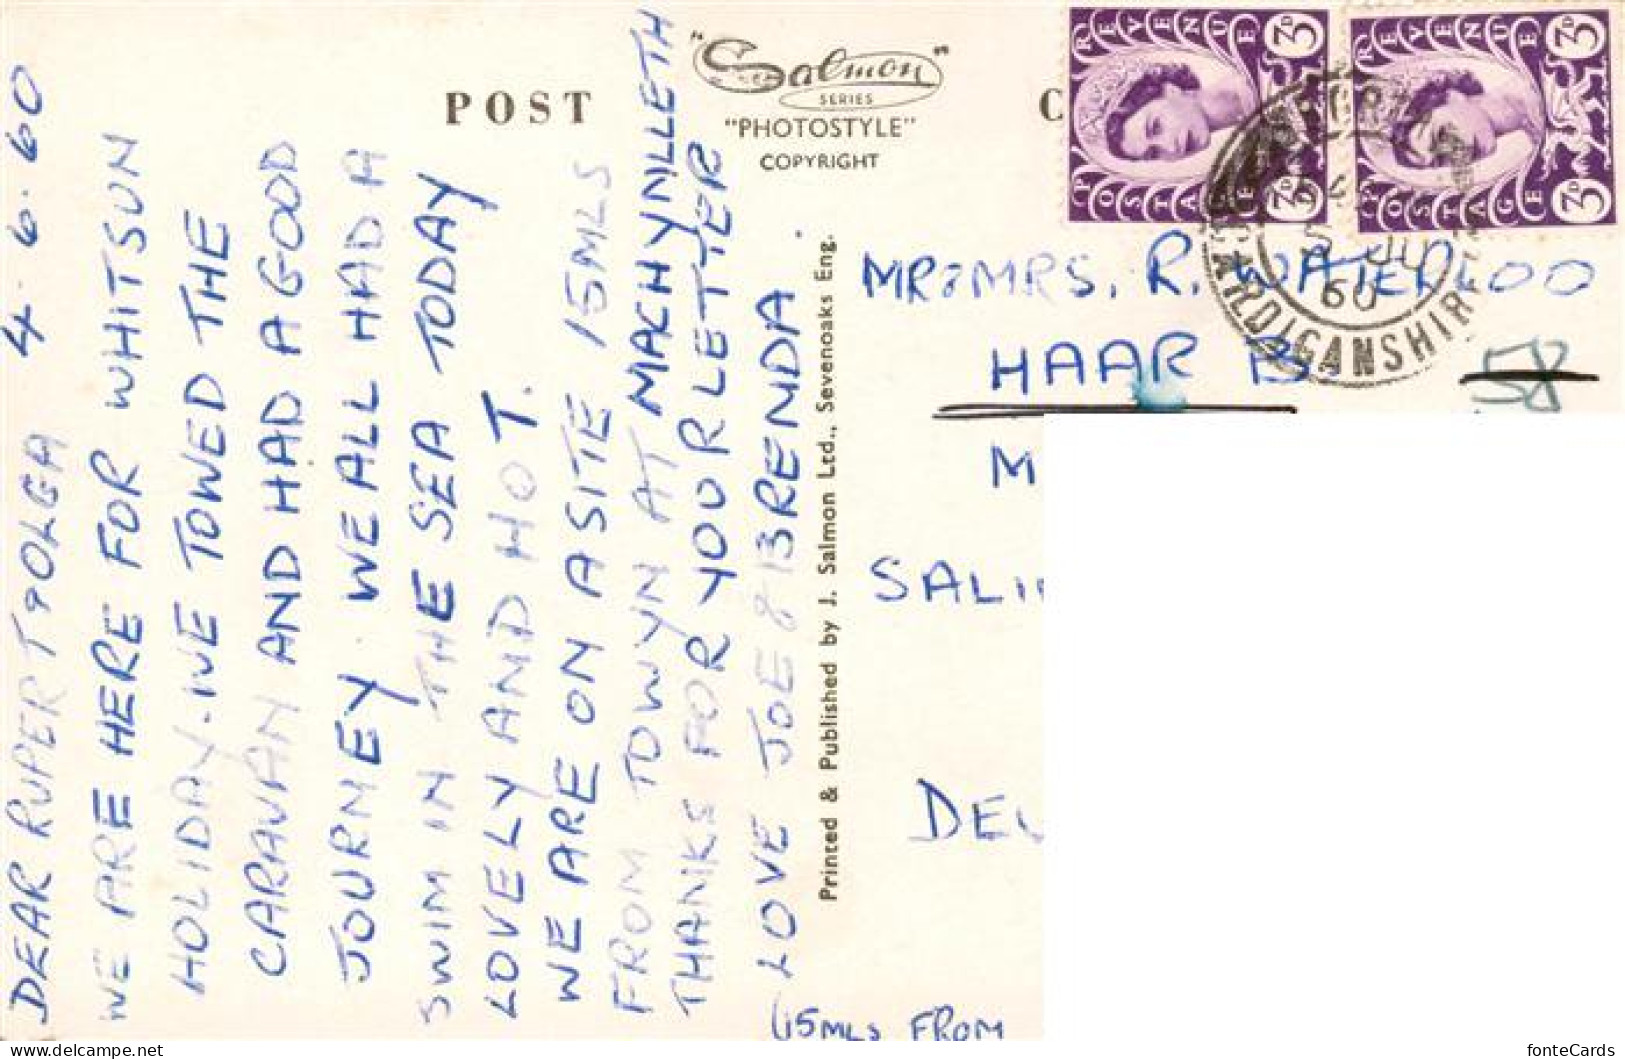 4.6.60
DEAR RUPERT & OLGA
WE ARE HERE FOR WHITSUN
HOLIDAY. WE TOWED THE
CARAVAN AND HAD A GOOD
JOURNEY. WE ALL HAD A
SWIM IN THE SEA TODAY
LOVELY AND HOT.
WE ARE ON A SITE 15MLS
FROM TOWYN AT MACHYNLLETH
THANKS FOR YOUR LETTER
LOVE JOE & BRENDA.
(15MLS FROM
POST
"Salmon"
SERIES
"PHOTOSTYLE"
COPYRIGHT
C
Printed & Published by J. Salmon Ltd., Sevenoaks Eng.
REVENUE
3D
POSTAGE
3D
REVENUE
3D
POSTAGE
3D
5 JU
60
CARDIGANSHIRE
MR & MRS. R. WATERLOO
HAAR B
58
M
SALI
DE
delcampe.net
fonteCards